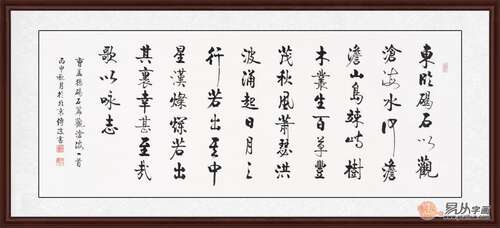 東臨碣石以觀
滄海水何澹
澹山島竦峙樹
木叢生百草豐
茂秋風蕭瑟洪
波涌起日月之
行若出其中
星漢燦爛若出
其裏幸甚至哉
歌以咏志
曹孟德碣石篇觀滄海一首
丙申秋月於北京
易从字画